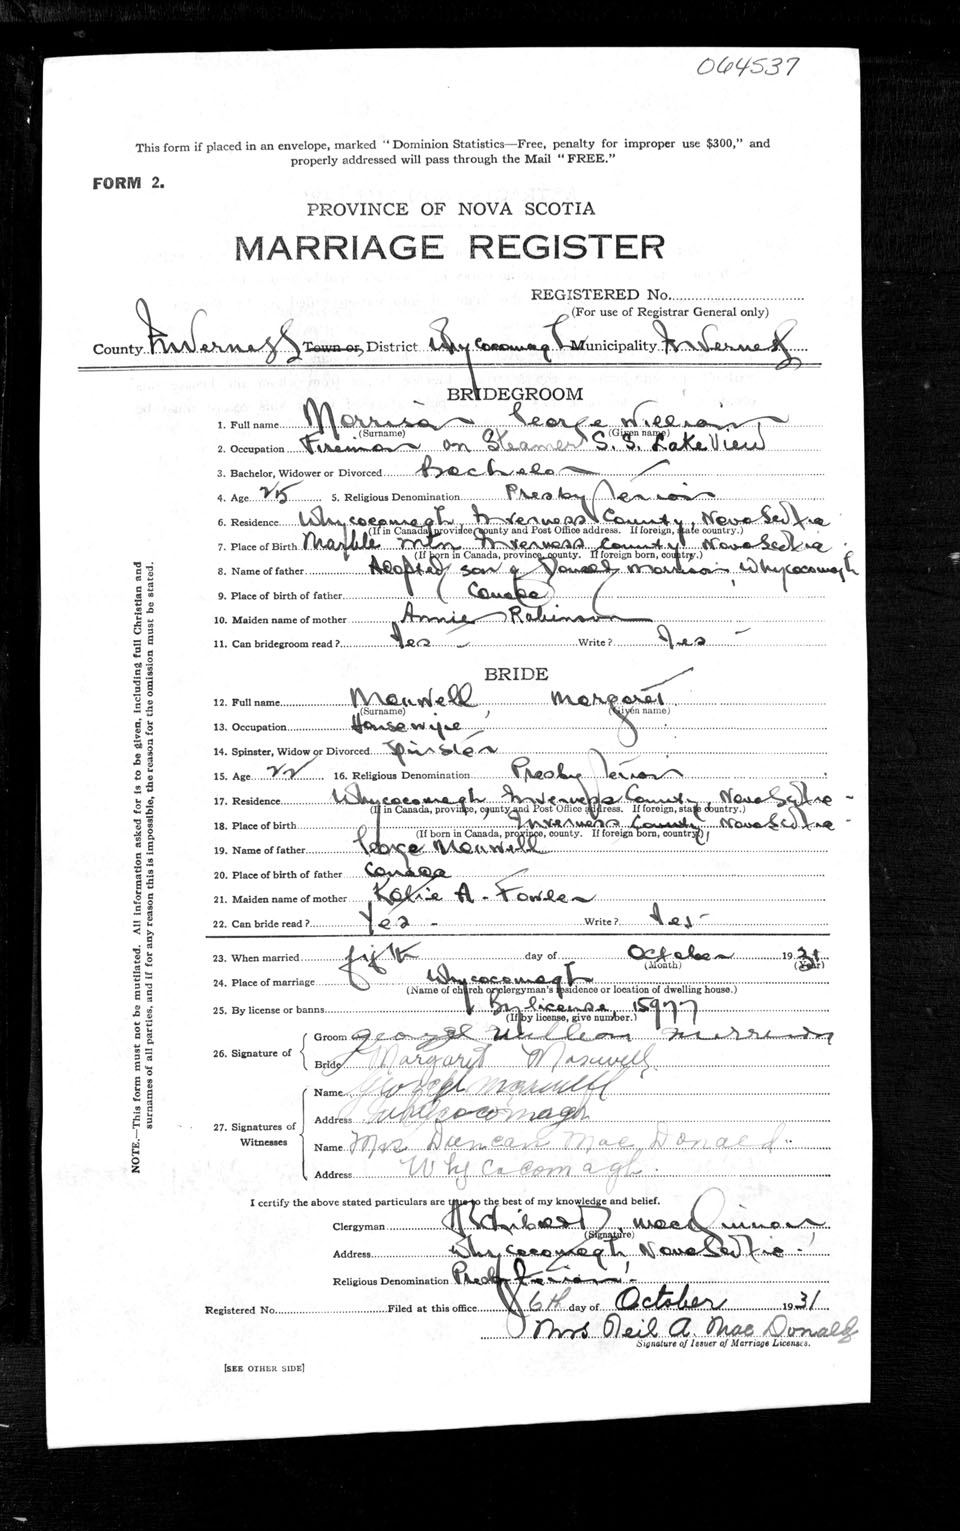 064537
This form if placed in an envelope, marked "Dominion Statistics—Free, penalty for improper use $300," and
properly addressed will pass through the Mail "FREE."
FORM 2.
PROVINCE OF NOVA SCOTIA
MARRIAGE REGISTER
REGISTERED No.
(For use of Registrar General only)
County Inverness Town or District Whycocomagh Municipality Inverness
BRIDEGROOM
1. Full name Morrison George William
(Surname) (Given name)
2. Occupation Fireman on Steamer S.S. Lake View
3. Bachelor, Widower or Divorced Bachelor
4. Age 25 5. Religious Denomination Presbyterian
6. Residence Whycocomagh Inverness County, Nova Scotia
(If in Canada, province, county and Post Office address. If foreign, state country.)
7. Place of Birth Marble Mtn Inverness County Nova Scotia
(If born in Canada, province, county. If foreign born, country.)
8. Name of father Adopted son of Donald Morrison, Whycocomagh
9. Place of birth of father (Canada)
10. Maiden name of mother Annie Robinson
11. Can bridegroom read? Yes Write? Yes
BRIDE
12. Full name Maxwell, Margaret
(Surname) (Given name)
13. Occupation Housewife
14. Spinster, Widow or Divorced Spinster
15. Age 22 16. Religious Denomination Presbyterian
17. Residence Whycocomagh Inverness County, Nova Scotia
(If in Canada, province, county and Post Office address. If foreign, state country.)
18. Place of birth Inverness County Nova Scotia
(If born in Canada, province, county. If foreign born, country)
19. Name of father George Maxwell
20. Place of birth of father Canada
21. Maiden name of mother Katie A. Fowler
22. Can bride read? Yes Write? Yes
23. When married fifth day of October 1931
(Month) (Year)
24. Place of marriage Whycocomagh
(Name of church or clergyman's residence or location of dwelling house.)
25. By license or banns By license, 15977
(If by license, give number.)
26. Signature of
Groom George William Morrison
Bride Margaret Maxwell
27. Signatures of Witnesses
Name George Maxwell
Address Whycocomagh
Name Mrs Duncan Mac Donald
Address Whycocomagh
I certify the above stated particulars are true to the best of my knowledge and belief.
Clergyman Archibald D. MacKinnon
(Signature)
Address Whycocomagh, Nova Scotia
Religious Denomination Presbyterian
Registered No. Filed at this office 6th day of October 1931
Mrs Neil A. Mac Donald
Signature of Issuer of Marriage Licenses.
[SEE OTHER SIDE]
NOTE.—This form must not be mutilated. All information asked for is to be given, including full Christian and
surnames of all parties, and if for any reason this is impossible, the reason for the omission must be stated.